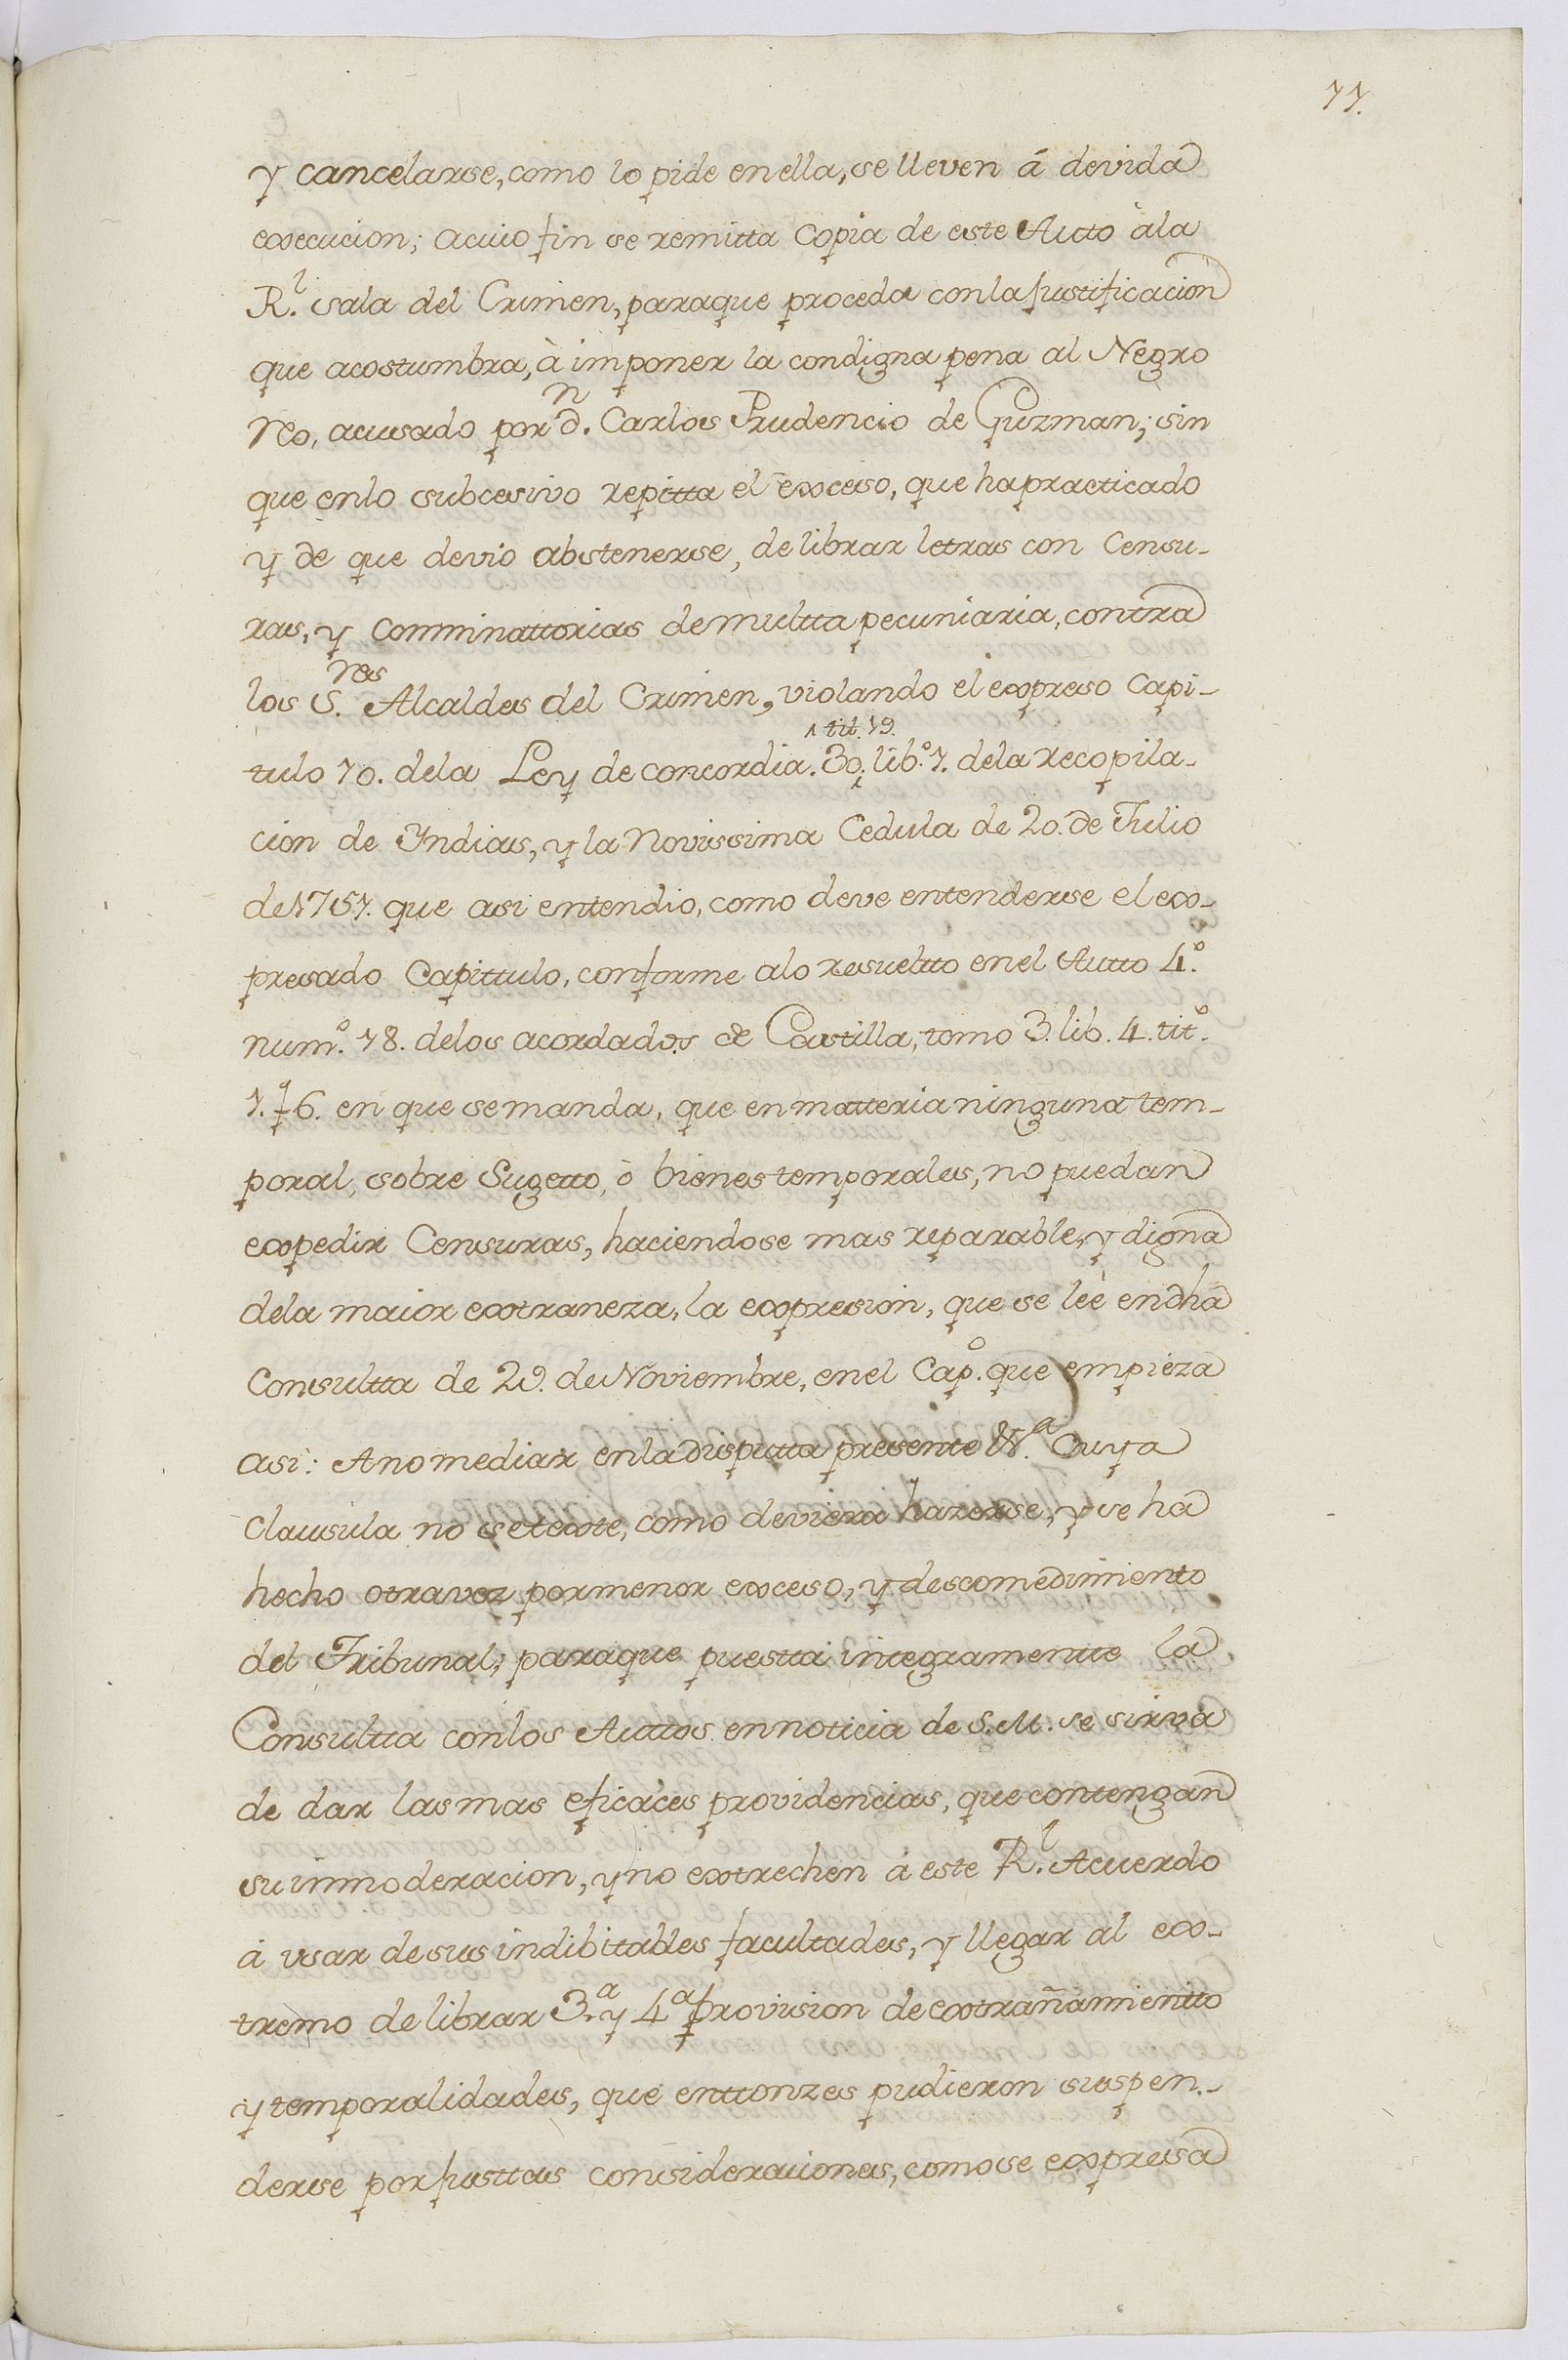 11.
y cancelarse, como lo pide en ella, se lleven á devida
execucion; acuio fin se remitta Copia de este Autto àla
R.l Sala del Crimen, paraque proceda conla justificacion
que acostumbra, à imponer la condigna pena al Negro
Reo, acusado por d.n Carlos Prudencio de Guzman; sin
que enlo subcesivo repitta el exceso, que hapracticado
y de que devio abstenerse, de librar letras con Censu-
ras, y comminattorias de multta pecuniaria, contra
los S.res Alcaldes del Crimen, violando el expreso Capi-
tit. 19.
tulo 10. dela Ley de concordia. 30. lib.o 1. dela recopila-
cion de Yndias, y la Novissima Cedula de 20. de Julio
de 1751. que asi entendio, como deve entenderse el ex-
presado Capittulo, conforme alo resueltto en el Autto 4.o
num.o 18. delos acordados de Castilla, tomo 3. lib. 4. tit.o
1. f 6. en que semanda, que en matteria ninguna tem-
poral, sobre Sugetto, ò bienes temporales, no puedan
expedir Censuras, haciendose mas reparable, y digna
dela maior extraneza, la expresion, que se leè en dha
Consultta de 29. de Noviembre, en el Cap.o que empieza
asi: A no mediar en la disputta presente &.a Cuya
Clausula no se texte, como deviera hazerse, y se ha
hecho otra vez por menor exceso, y descomedimiento
del Tribunal; paraque puestta integramentte la
Consultta conlos Auttos en noticia de S.M. se sirva
de dar las mas eficaces providencias, que contengan
su inmoderacion, y no extrechen á este R.l Acuerdo
á usar de sus indibittables facultades, y llegar al ex-
tremo de librar 3.a y 4.a Provision de extrañamientto
y temporalidades, que enttonzes pudieron suspen-
derse por justtas consideraciones, como se expresa